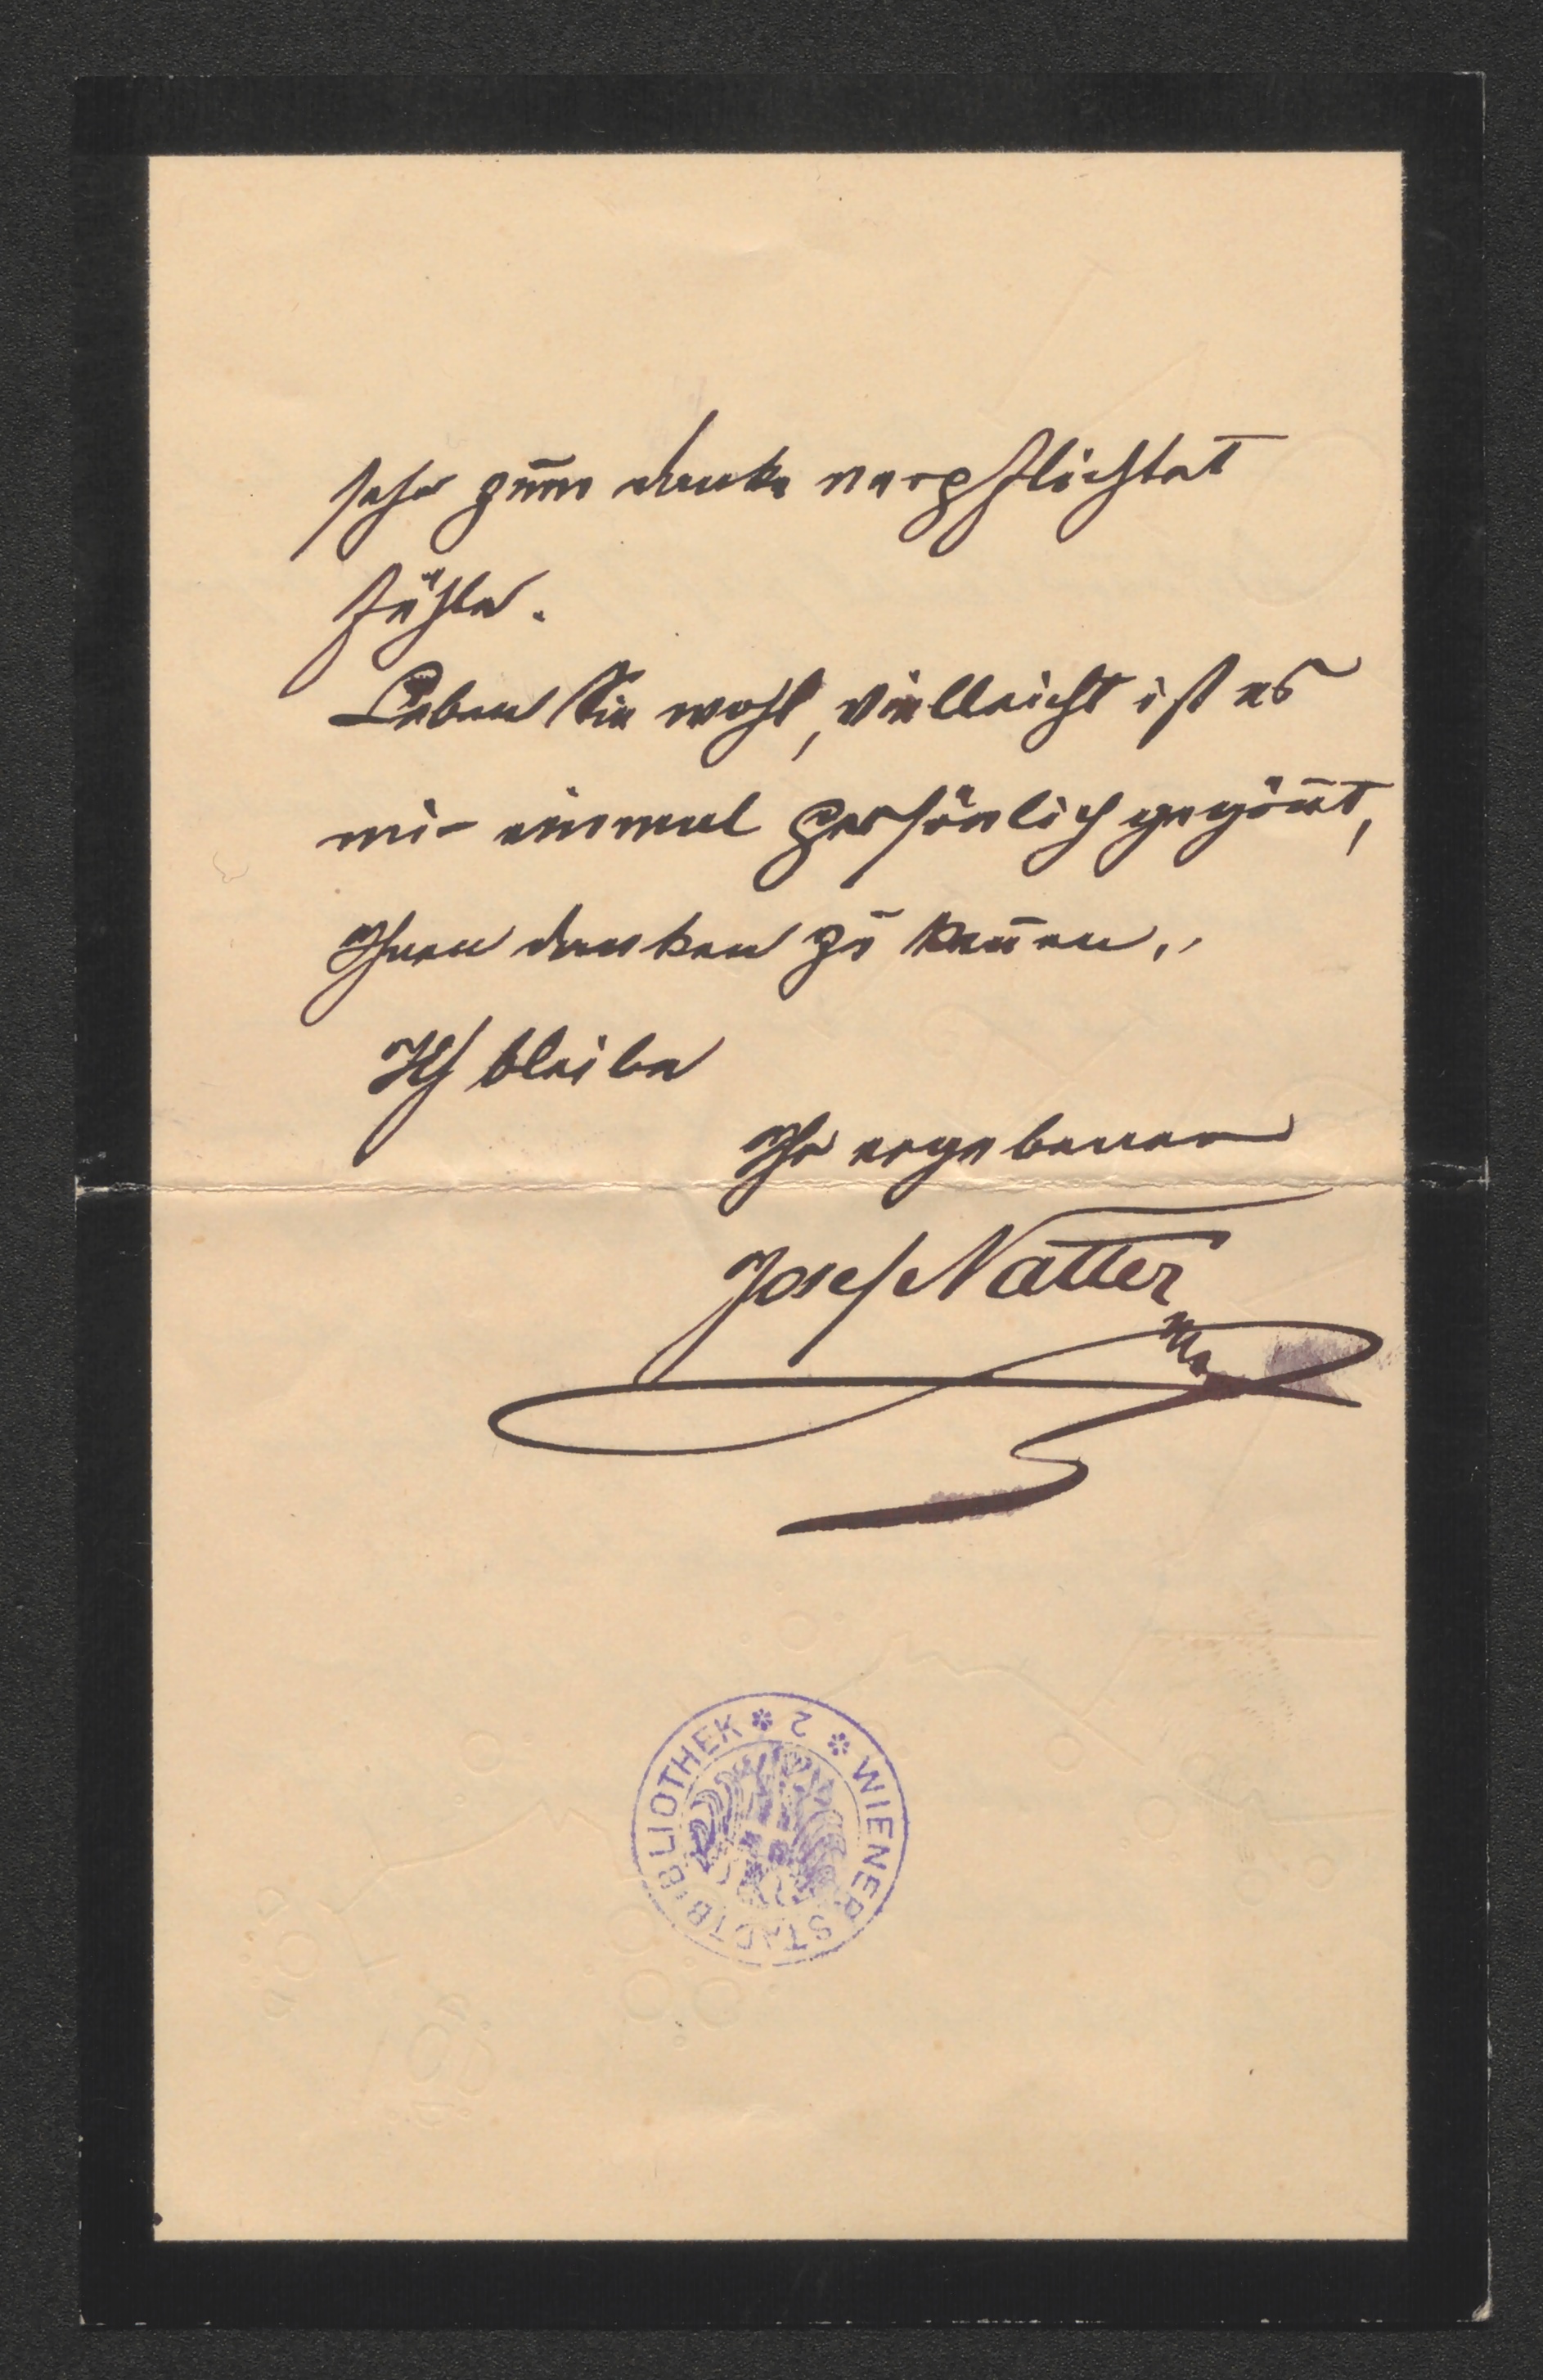 sehr zum danke verpflichtet
fühle.
Leben Sie wohl, vielleicht ist es
mir einmal persönlich gegönnt,
Ihnen danken zu kennen.,
Ich bleibe
Ihr ergebener
Josef Natter
WIENER STADTBIBLIOTHEK * 2 *